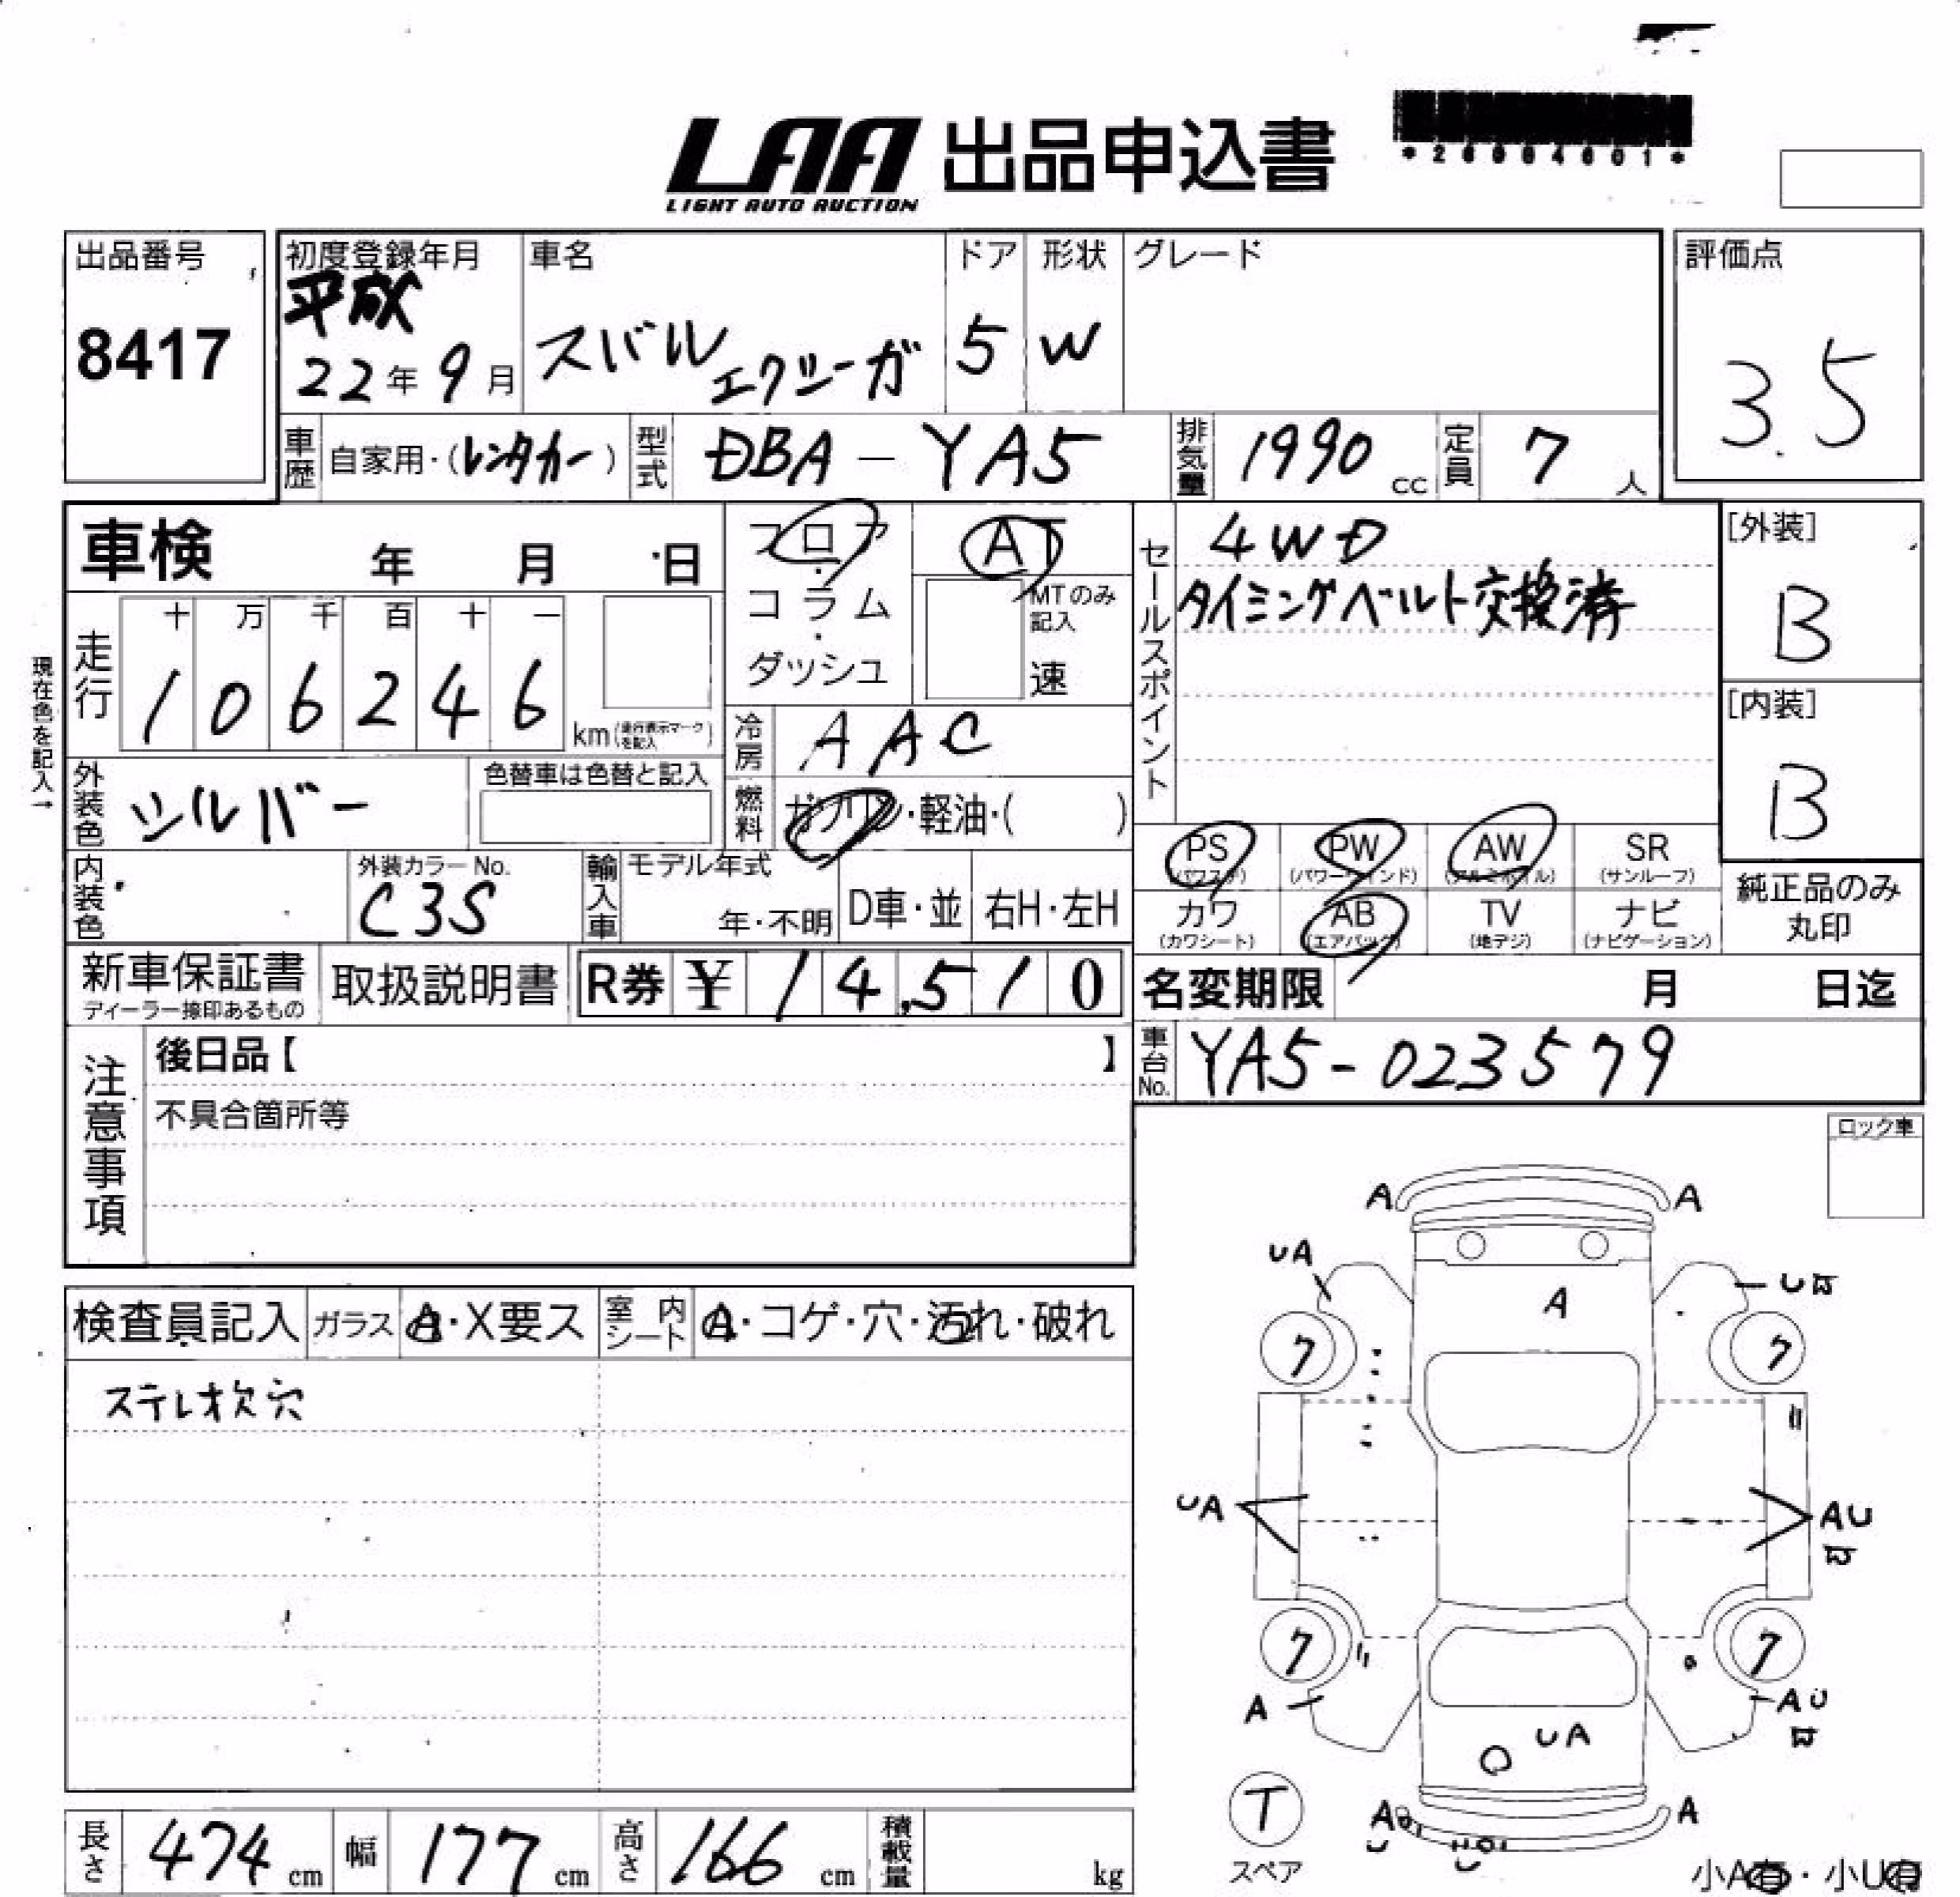 LAA 出品申込書
LIGHT AUTO AUCTION
*26004601*
出品番号
8417
初度登録年月
平成
22年9月
車名
スバル
エクシーガ
ドア
5
形状
W
グレード
評価点
3.5
車歴
自家用・(レンタカー)
型式
DBA-YA5
排気量
1990cc
定員
7人
車検 年 月 日
フロア
・
コラム
・
ダッシュ
AT
MTのみ
記入
速
セールスポイント
4WD
タイミングベルト交換済
[外装]
B
[内装]
B
現在色を記入→
走行
十 万 千 百 十 一
1 0 6 2 4 6
km(走行表示マークを記入)
冷房
AAC
外装色
シルバー
色替車は色替と記入
燃料
ガソリン・軽油・( )
PS
(パワステ)
PW
(パワーウインド)
AW
(アルミホイル)
SR
(サンルーフ)
カワ
(カワシート)
AB
(エアバッグ)
TV
(地デジ)
ナビ
(ナビゲーション)
純正品のみ
丸印
内装色
外装カラーNo.
C3S
輸入車
モデル年式
年・不明
D車・並
右H・左H
新車保証書
ディーラー捺印あるもの
取扱説明書
R券 ¥ 14,510
名変期限 月 日迄
車台No.
YA5-023579
注意事項
後日品【 】
不具合箇所等
ロック車
検査員記入
ガラス
A・X要ス
室内
シート
A・コゲ・穴・汚れ・破れ
ステレオ欠穴
A
A
UA
A
U
7
7
UA
AU
7
7
A
AU
UA
T
スペア
A
U
A
小A有・小U有
長さ
474cm
幅
177cm
高さ
166cm
積載量
kg